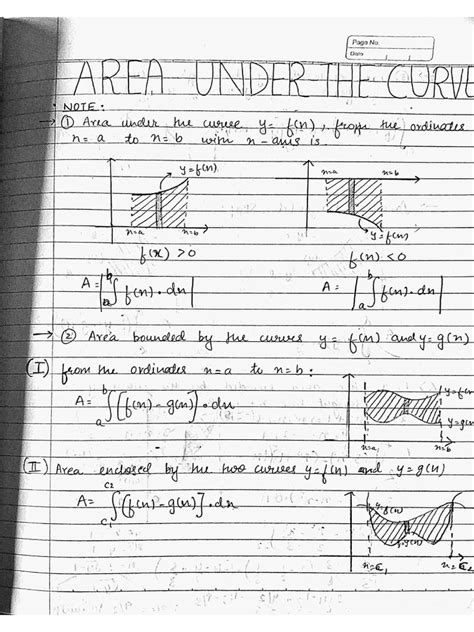 Page No.
Date
AREA UNDER THE CURVE
NOTE:
→ ① Area under the curve y = f(x), from the ordinates
x = a to x = b with x-axis is.
y = f(x)
x=a
x=b
f(x) > 0
A = |∫_a^b f(x)·dx|
x=a
x=b
y = f(x)
f(x) < 0
A = |∫_a^b f(x)·dx|
→ ② Area bounded by the curves y = f(x) and y = g(x)
(I) from the ordinates x=a to x=b :
A = ∫_a^b [f(x) - g(x)]·dx
y=f(x)
y=g(x)
x=a
x=b
(II) Area enclosed by the two curves y=f(x) and y=g(x)
A = ∫_{c1}^{c2} [f(x) - g(x)]·dx
y=f(x)
y=g(x)
x=c1
x=c2